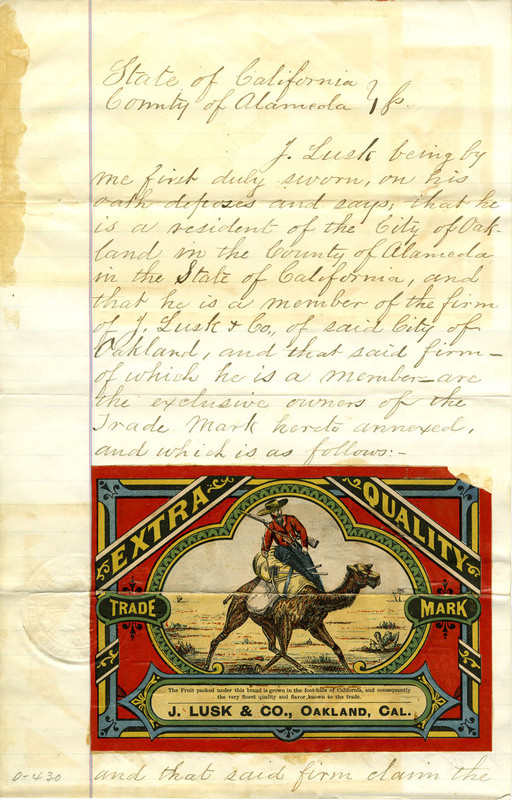 State of California
County of Alameda } ss.
J. Lusk being by
me first duly sworn, on his
oath deposes and says, that he
is a resident of the City of Oak-
land in the County of Alameda
in the State of California, and
that he is a member of the firm
of J. Lusk & Co., of said City of
Oakland, and that said firm–
of which he is a member–are
the exclusive owners of the
Trade Mark hereto annexed,
and which is as follows:–
EXTRA QUALITY
TRADE MARK
The Fruit packed under this brand is grown in the foot-hills of California, and consequently
the very finest quality and flavor known to the trade.
J. LUSK & CO., OAKLAND, CAL.
and that said firm claim the
0-430